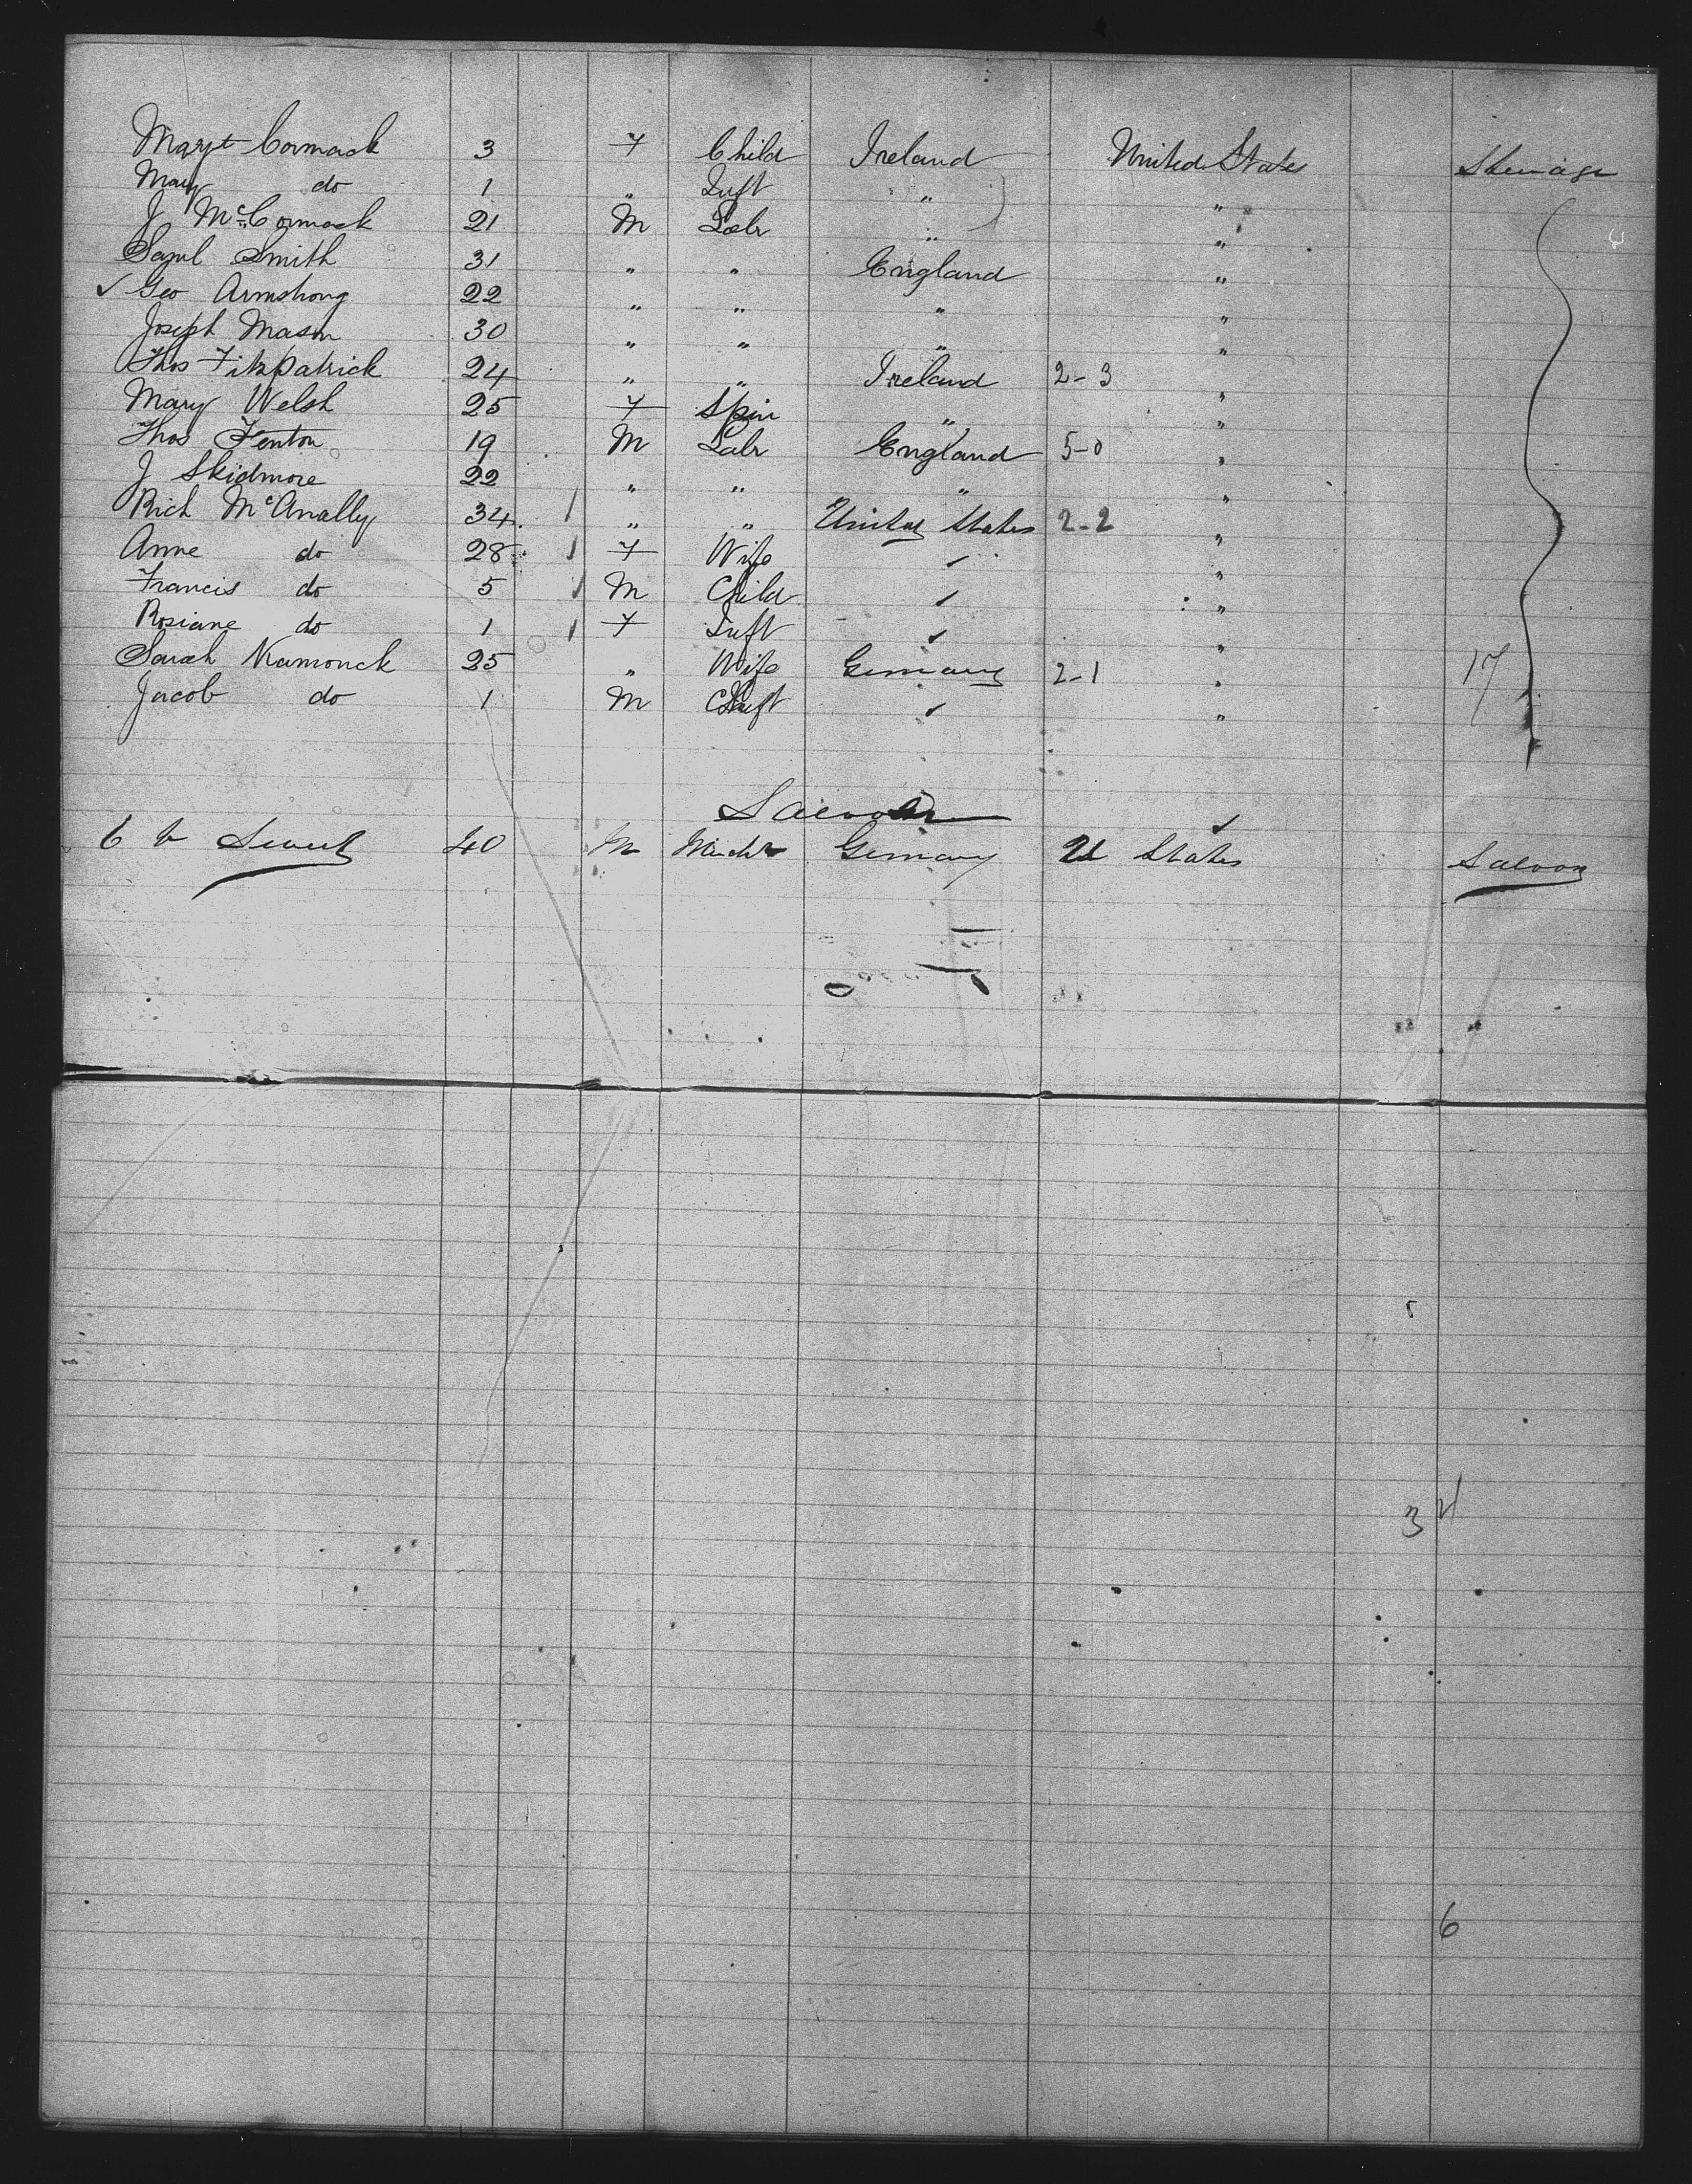 Margt Cormack 3 F Child Ireland United States Steerage
Mary do 1 " Inft " "
J McCormack 21 M Labr " "
Saml Smith 31 " " England "
✓ Geo Armstrong 22 " " " "
Joseph Mason 30 " " " "
Thos Fitzpatrick 24 " " Ireland 2-3 "
Mary Welsh 25 F Spin " "
Thos Fenton 19 M Labr England 5-0 "
J Skidmore 22 " " " "
Rich McAnally 34 / " " United States 2-2 "
Anne do 28 / F Wife ✓ "
Francis do 5 / M Child ✓ "
Rosiane do 1 / F Inft ✓ "
Sarah Kamonck 25 " Wife Germany 2-1 " 17
Jacob do 1 M Inft ✓ "
Saloon
40 M Mercht Germany U States Saloon
3
6